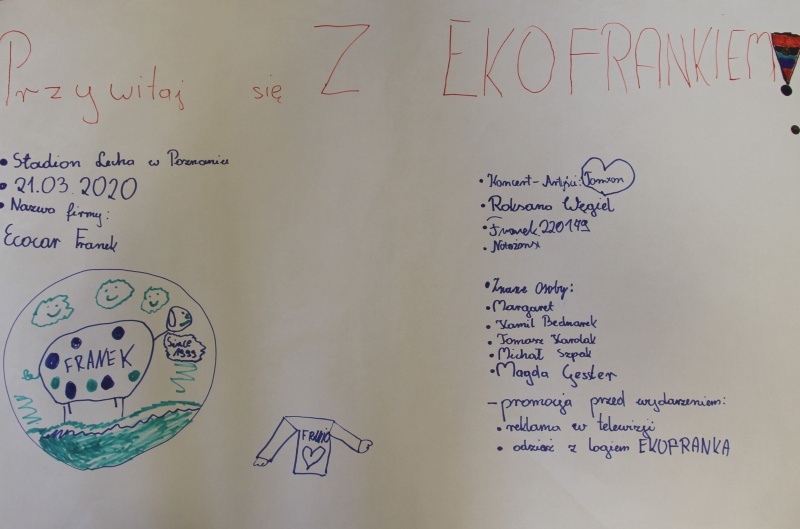 Przywitaj się Z EKOFRANKIEM!
• Stadion Lecha w Poznaniu
• 21.03.2020
• Nazwa firmy:
Ecocar Franek
FRANEK
Since 1999
FRANIO
• Koncert - Artyści:
• Roksana Węgiel
• Franek.220149
• Znane Osoby:
• Margaret
• Kamil Bednarek
• Tomasz Karolak
• Michał Szpak
• Magda Gessler
- promocja przed wydarzeniem:
• reklama w telewizji
• odzież z logiem EKOFRANKA